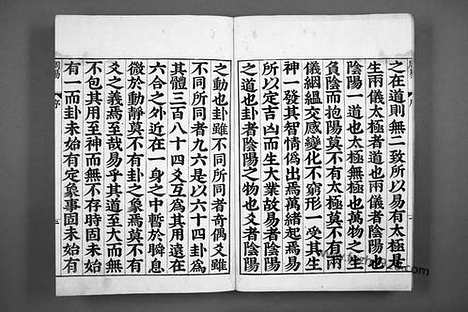 之在道則無二致所以易有太極是
生兩儀太極者道也兩儀者陰陽也
陰陽一道也太極無極也萬物之生
負陰而抱陽莫不有太極莫不有兩
儀絪縕交感變化不窮形一受其生
神一發其智情偽出焉萬緒起焉易
所以定吉凶而生大業故易者陰陽
之道也卦者陰陽之物也爻者陰陽
之動也卦雖不同所同者奇偶爻雖
不同所同者九六是以六十四卦為
其體三百八十四爻互為其用遠在
六合之外近在一身之中暫於瞬息
微於動靜莫不有卦之象焉莫不有
爻之義焉至哉易乎其道至大而無
不包其用至神而無不存時固未始
有一而卦未始有定象事固未始